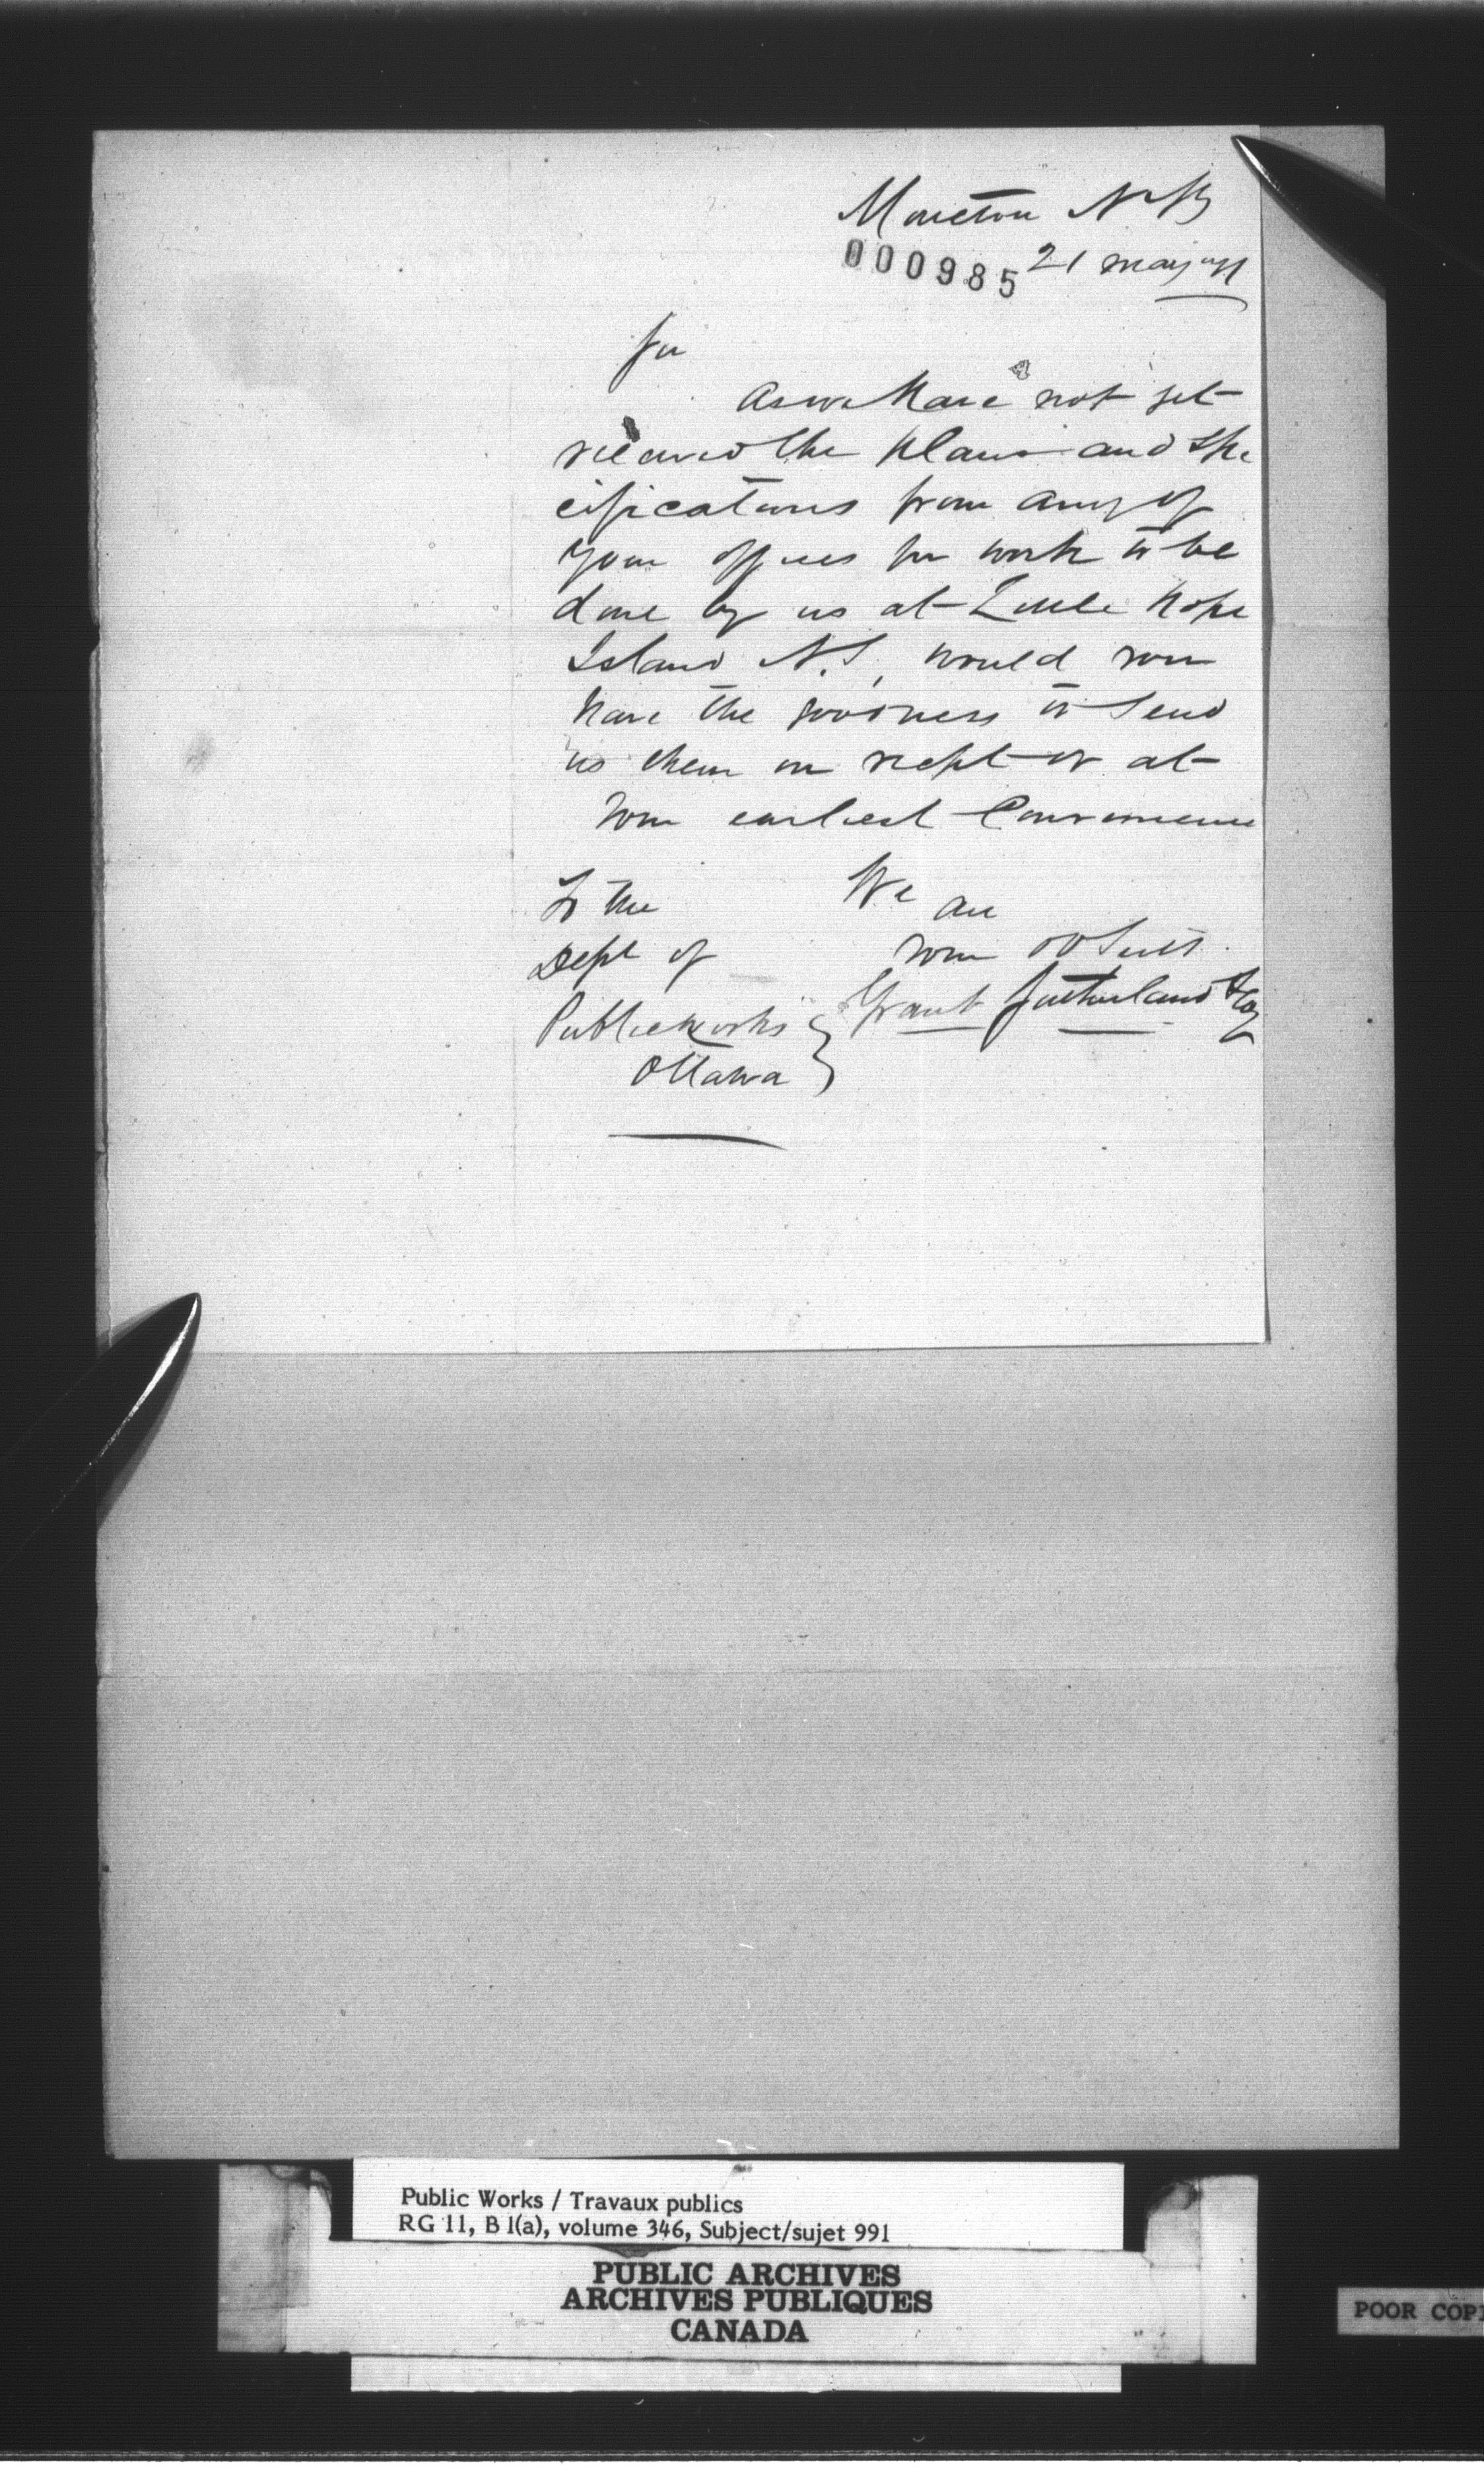 Moncton N B
000985 21 May
Sir
As we have not yet
received the plans and Spe
cifications from any of
your offices for work to be
done by us at Little Hope
Island N.S, would you
have the goodness to Send
us them on recpt or at
your earliest Convenience
To the We are
Dept of your
Public Works Grant Sutherland & Co
Ottawa
Public Works / Travaux publics
RG 11, B 1(a), volume 346, Subject/sujet 991
PUBLIC ARCHIVES
ARCHIVES PUBLIQUES
CANADA
POOR COPI